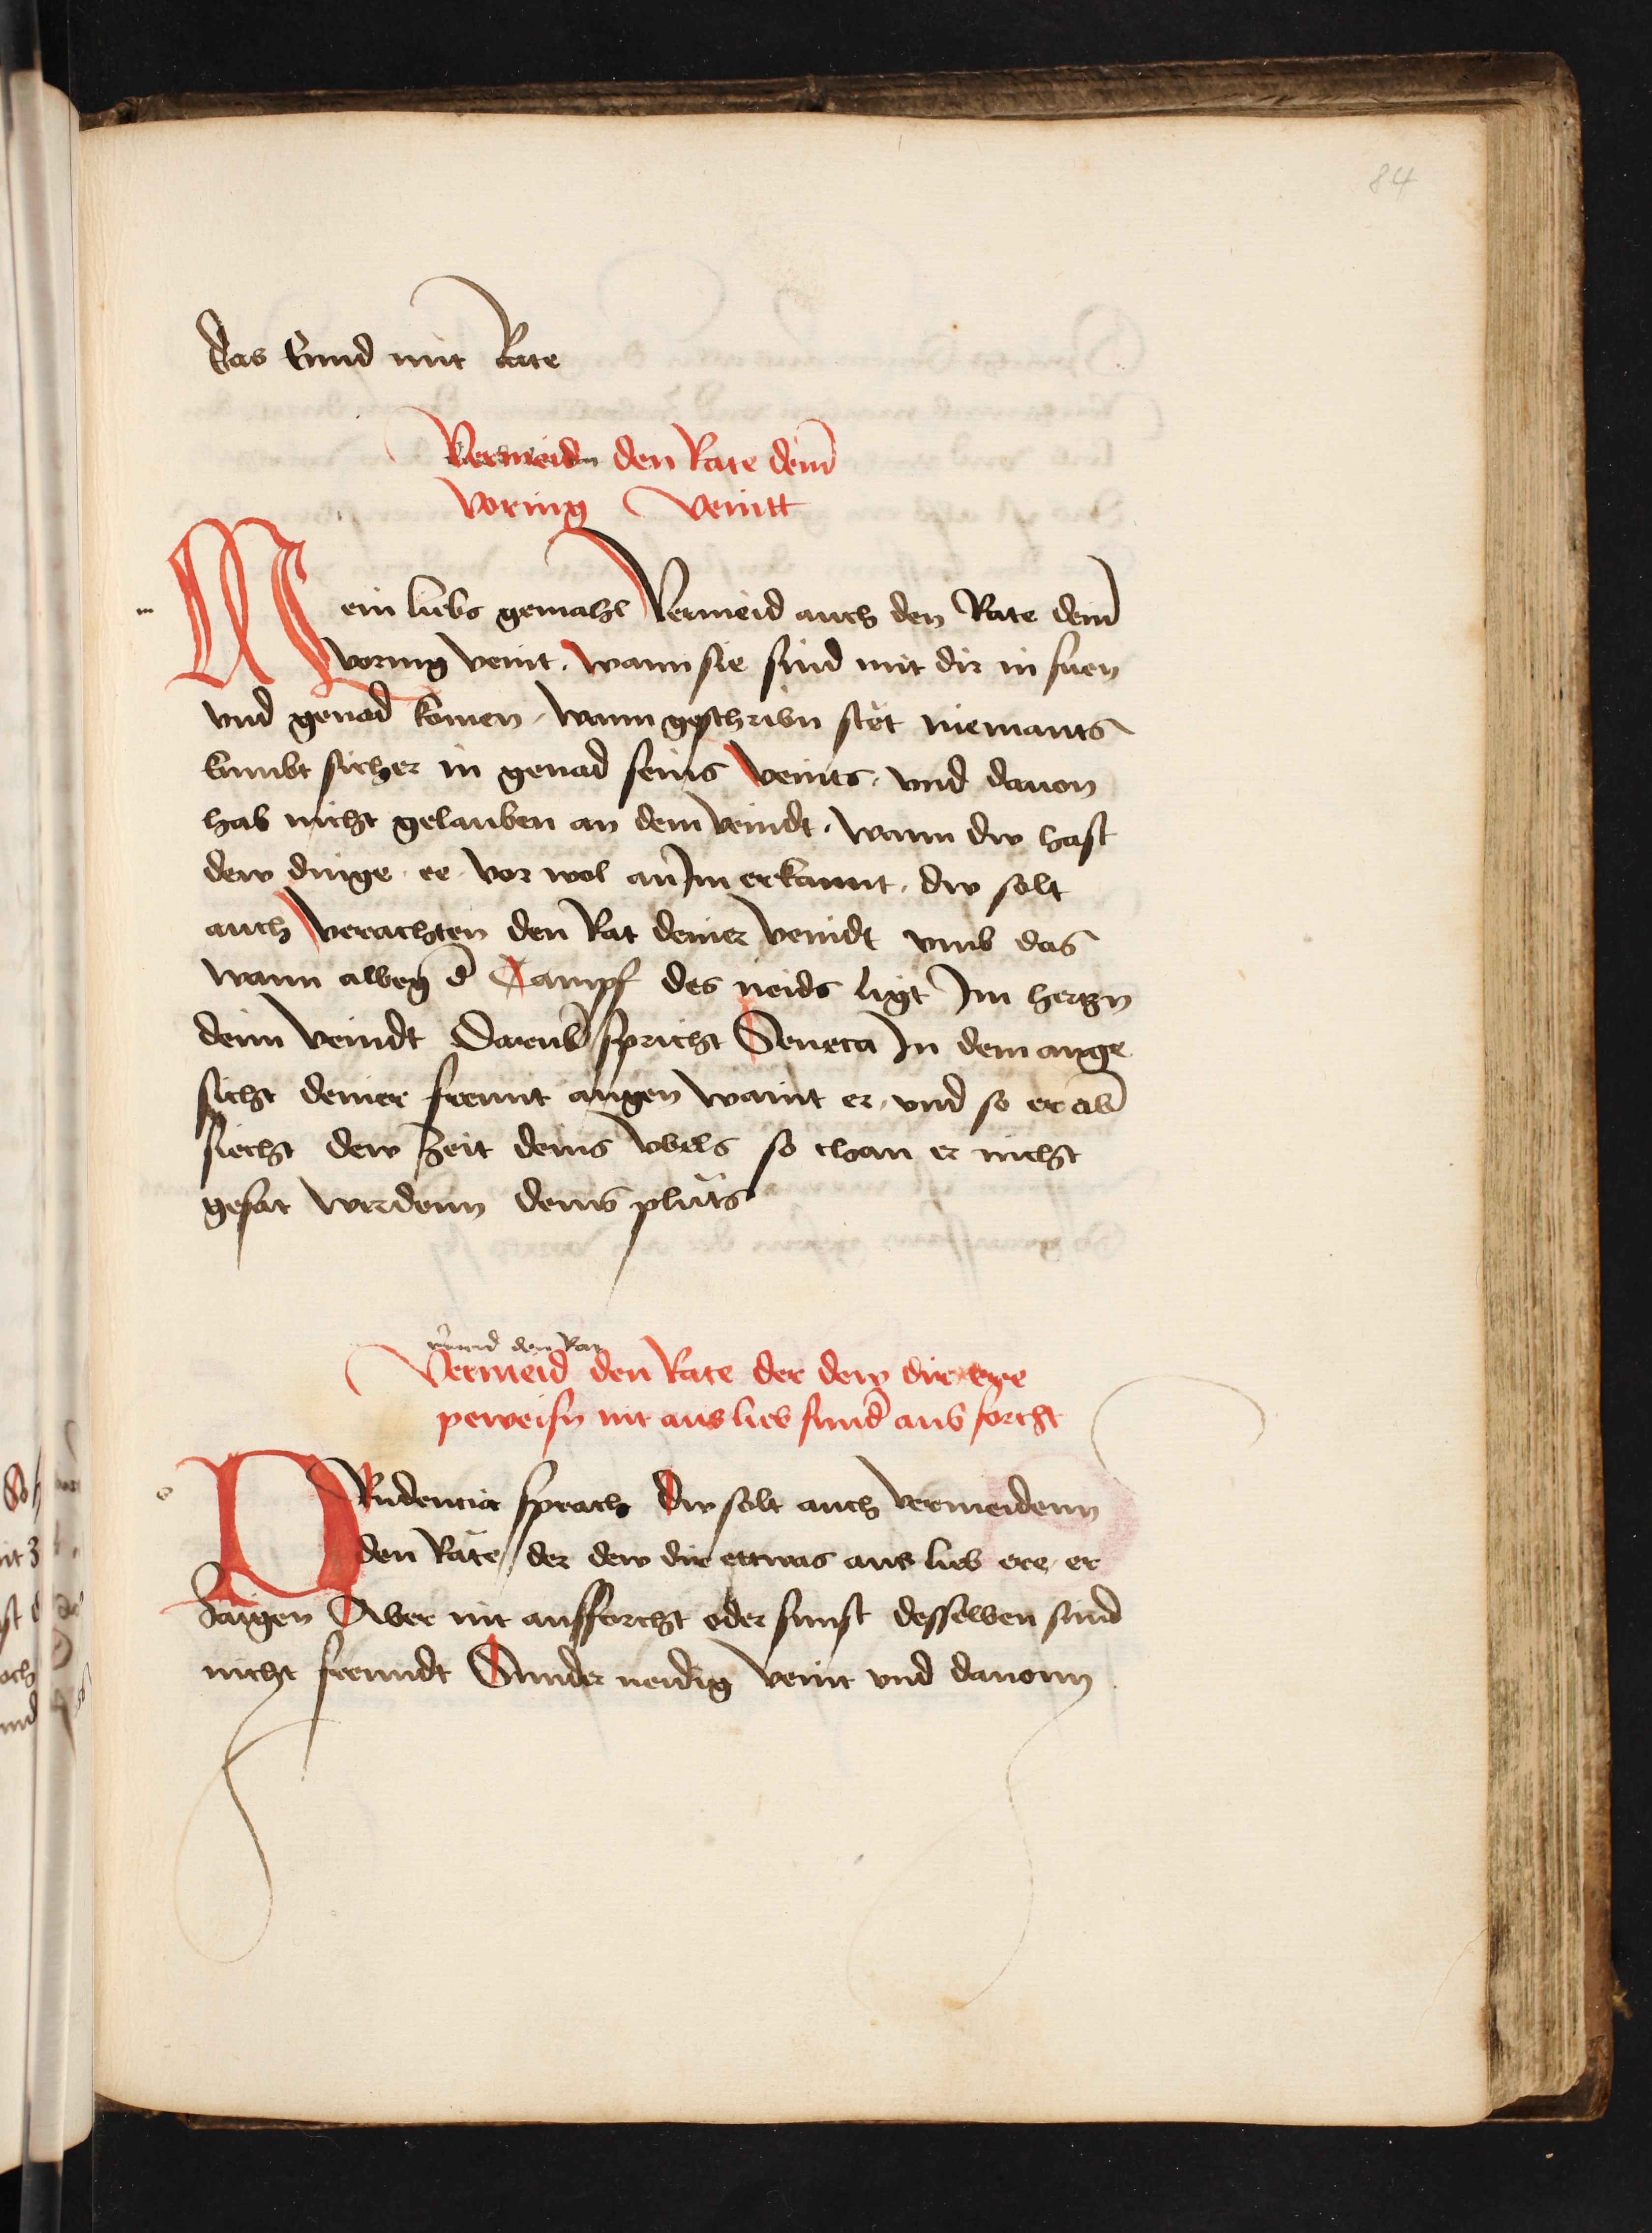 84
das kund mit Rate
Vermeid den Rate deiner̄
voring veintt
Mein liebs gemahl Vermeid auch den Rate dein̄
voring veint. wann sie sind mit dir in suen
vnd genad komen. wann geschribn stet niemants
kumbt sicher in genad seins veints. vnd dauon
hab nicht gelauben an dem veindt. wann dw hast
dew dinge. ee. vor wol an Im erkannt. dw solt
auch verachten den Rat deiner veindt vmb das
wann albeg d̄ dampf des neids ligt Im hertzn
deinn veindt Darumb spricht Seneca In dem ange
sicht deiner freunt augen waint er. vnd so er ab̄
siecht dew zeit deins vbels so chan er nicht
gesat werdenn deins pluts
vmeid den Rat
Vermeid den Rate der dew dir ere
peweisn nit aus lieb sund̄ aus forcht
PRudencia sprach Dw solt auch vermeidenn
den Rate der dew dir ettwas aus lieb ere er
zaigen Aber nit aus forcht oder sunst desselben sind
nicht freundt Sunder neidig veint vnd dauonn